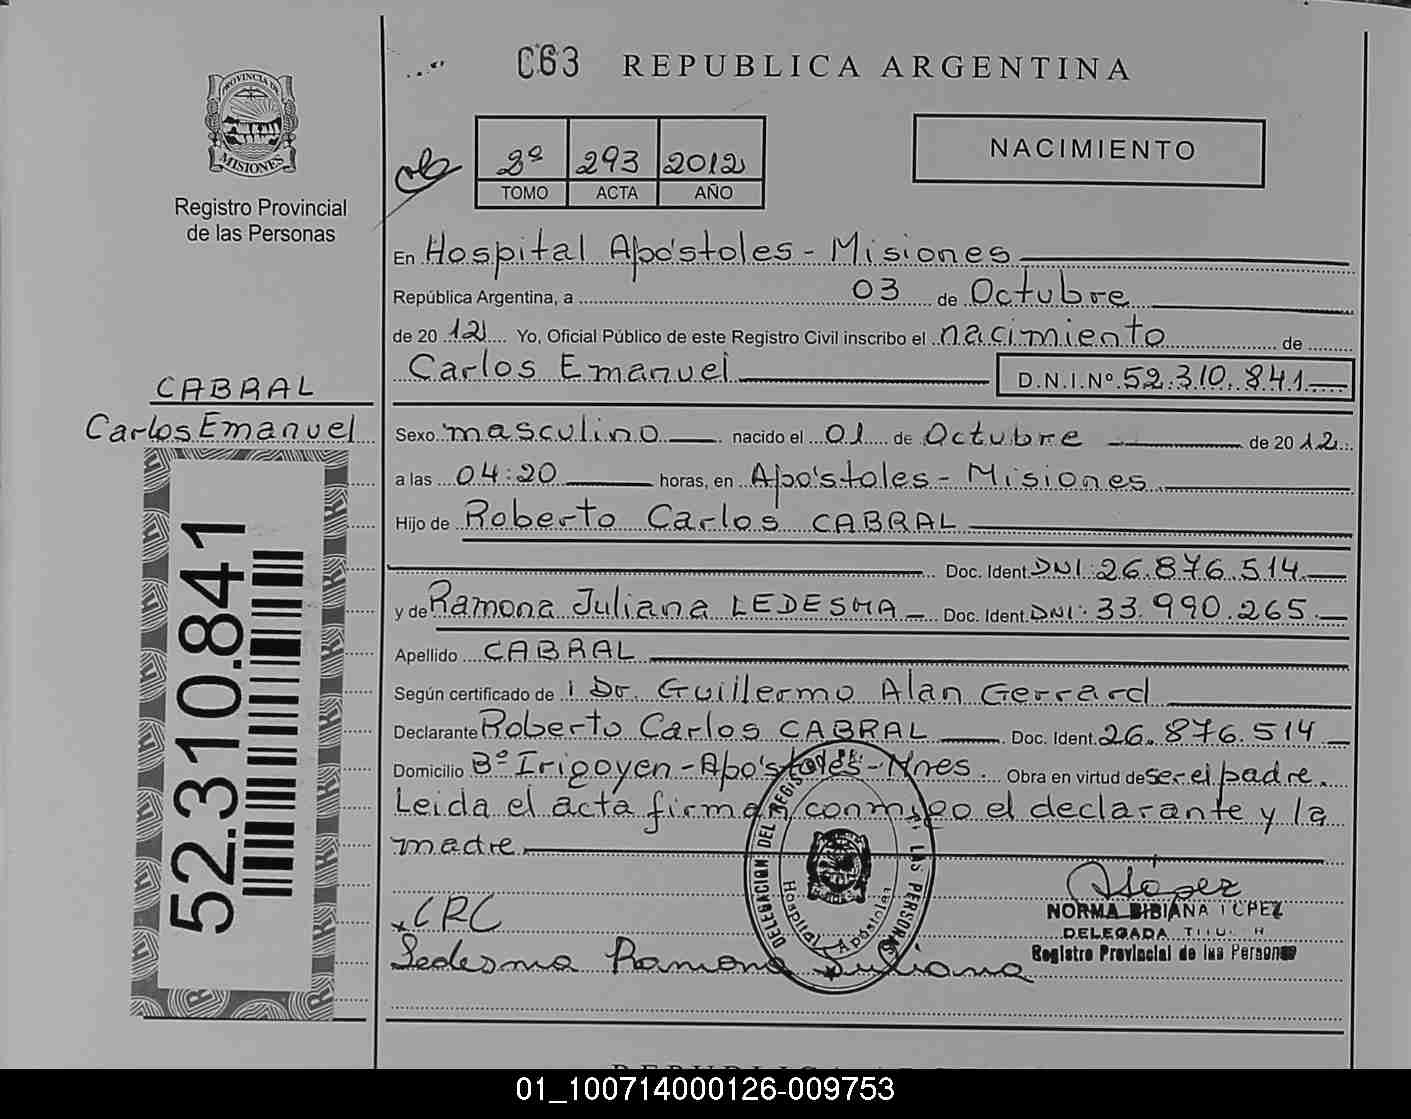 C63 REPUBLICA ARGENTINA
PROVINCIA DE
MISIONES
Registro Provincial
de las Personas
2º 293 2012
TOMO ACTA AÑO
NACIMIENTO
En Hospital Apóstoles - Misiones
República Argentina, a 03 de Octubre
de 20 12 Yo, Oficial Público de este Registro Civil inscribo el nacimiento de
Carlos Emanuel D.N.I.Nº 52.310.841
CABRAL
Carlos Emanuel
52.310.841
Sexo masculino nacido el 01 de Octubre de 20 12
a las 04:20 horas, en Apóstoles - Misiones
Hijo de Roberto Carlos CABRAL
Doc. Ident. DNI: 26.876.514
y de Ramona Juliana LEDESMA Doc. Ident. DNI: 33.990.265
Apellido CABRAL
Según certificado de Dr. Guillermo Alan Gerrard
Declarante Roberto Carlos CABRAL Doc. Ident. 26.876.514
Domicilio Bº Irigoyen - Apóstoles - Mnes Obra en virtud de ser el padre.
Leida el acta firman conmigo el declarante y la
madre
DELEGACION DEL REGISTRO LAS PERSONAS
Hospital Apóstoles
CRC
Ledesma Ramona Juliana
NORMA BIBIANA LOPEZ
DELEGADA
Registro Provincial de las Personas
01_100714000126-009753